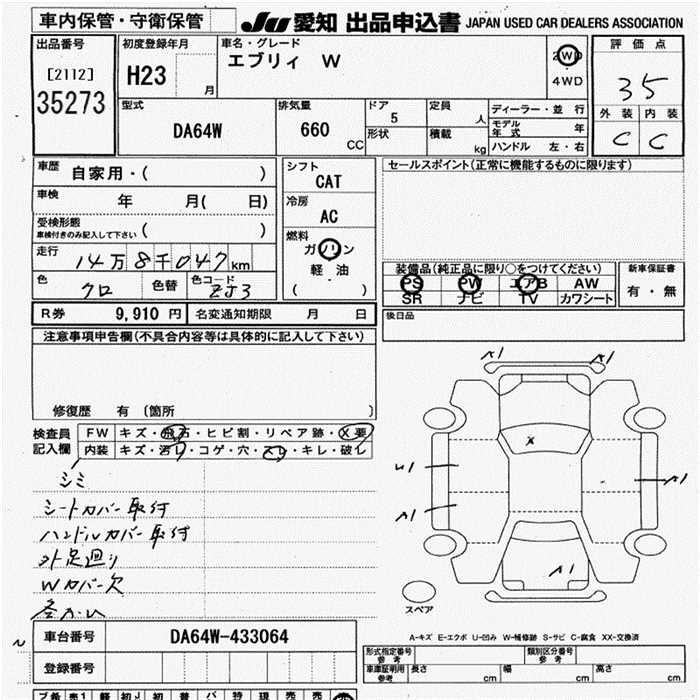 車内保管・守衛保管 JU 愛知 出品申込書 JAPAN USED CAR DEALERS ASSOCIATION
出品番号
[2112]
35273
初度登録年月
H23 月
車名・グレード
エブリィ W
2WD
4WD
評価点
35
外装 内装
C C
型式
DA64W
排気量
660 CC
ドア
5
形状
定員
人
積載
kg
ディーラー・並 行
モデル年式 年
ハンドル 左・右
車歴
自家用・( )
車検
年 月( 日)
受検形態
車検付きのみ記入して下さい ( )
走行
14万8千047km
色
クロ
色替
色コード
ZJ3
シフト
CAT
冷房
AC
燃料
ガソリン
軽油
( )
セールスポイント(正常に機能するものに限ります)
装備品(純正品に限り○をつけてください)
PS PW エアB AW
SR ナビ TV カワシート
新車保証書
有・無
R券 9,910 円 名変通知期限 月 日
後日品
注意事項申告欄(不具合内容等は具体的に記入して下さい)
修復歴 有 〔箇所 〕
検査員
記入欄
FW キズ・飛石・ヒビ割・リペア跡・X要
内装 キズ・汚レ・コゲ・穴・スレ・キレ・破レ
シミ
シートカバー取付
ハンドルカバー取付
外足廻り
Wカバー欠
A1 A1
x
U1
A1
A1
A1
スペア
A-キズ E-エクボ U-凹み W-補修跡 S-サビ C-腐食 XX-交換済
車台番号 DA64W-433064
登録番号
形式指定番号
参考
類別区分番号
参考
車庫証明用
参考
長さ cm 幅 cm 高さ cm